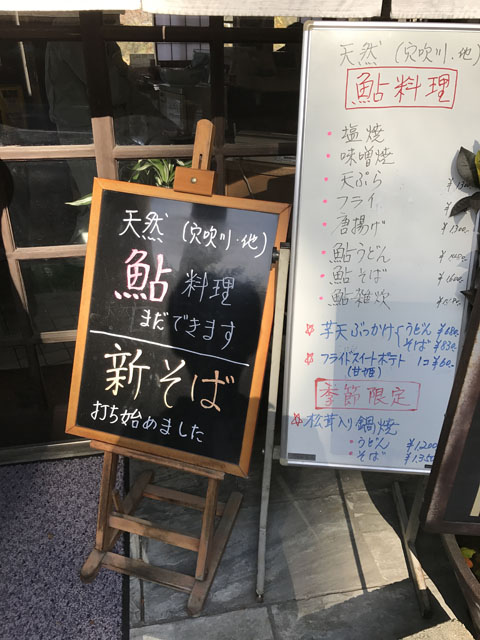 天然 (穴吹川・他)
鮎 料理
まだできます
新そば
打ち始めました
天然 (穴吹川・他)
鮎料理
・塩焼
・味噌焼
・天ぷら
・フライ
・唐揚げ
・鮎うどん
・鮎そば
・鮎雑炊
☆芋天ぶっかけ うどん
そば ¥830
☆フライドスイートポテト 1コ
(甘姫)
季節限定
☆松茸入り鍋焼
・うどん ¥1,200
・そば ¥1,350